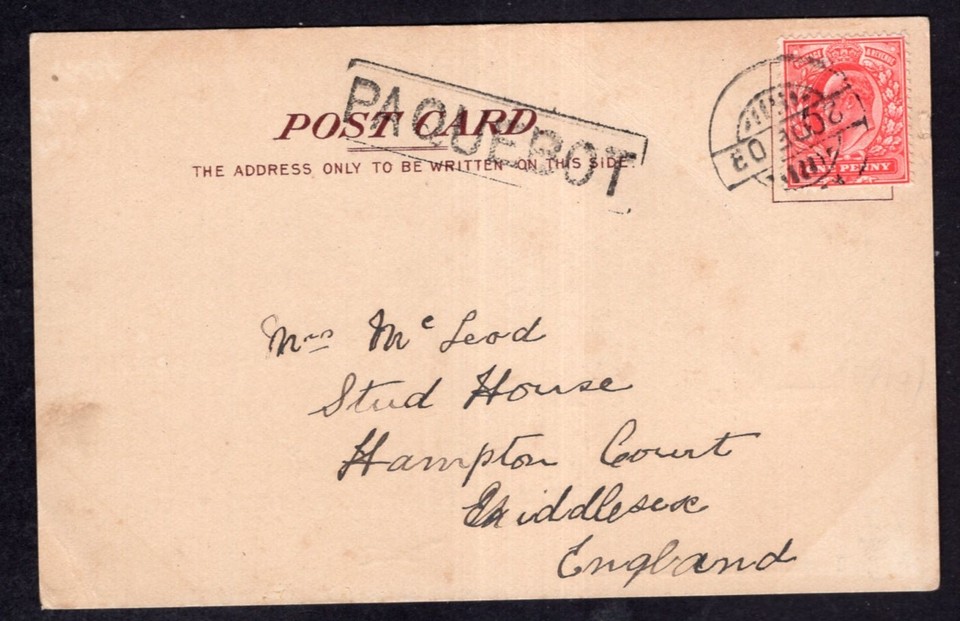 POST CARD
PAQUEBOT
THE ADDRESS ONLY TO BE WRITTEN ON THIS SIDE.
POSTAGE & REVENUE
ONE PENNY
DE 03
Mrs McLeod
Stud House
Hampton Court
Middlesex
England